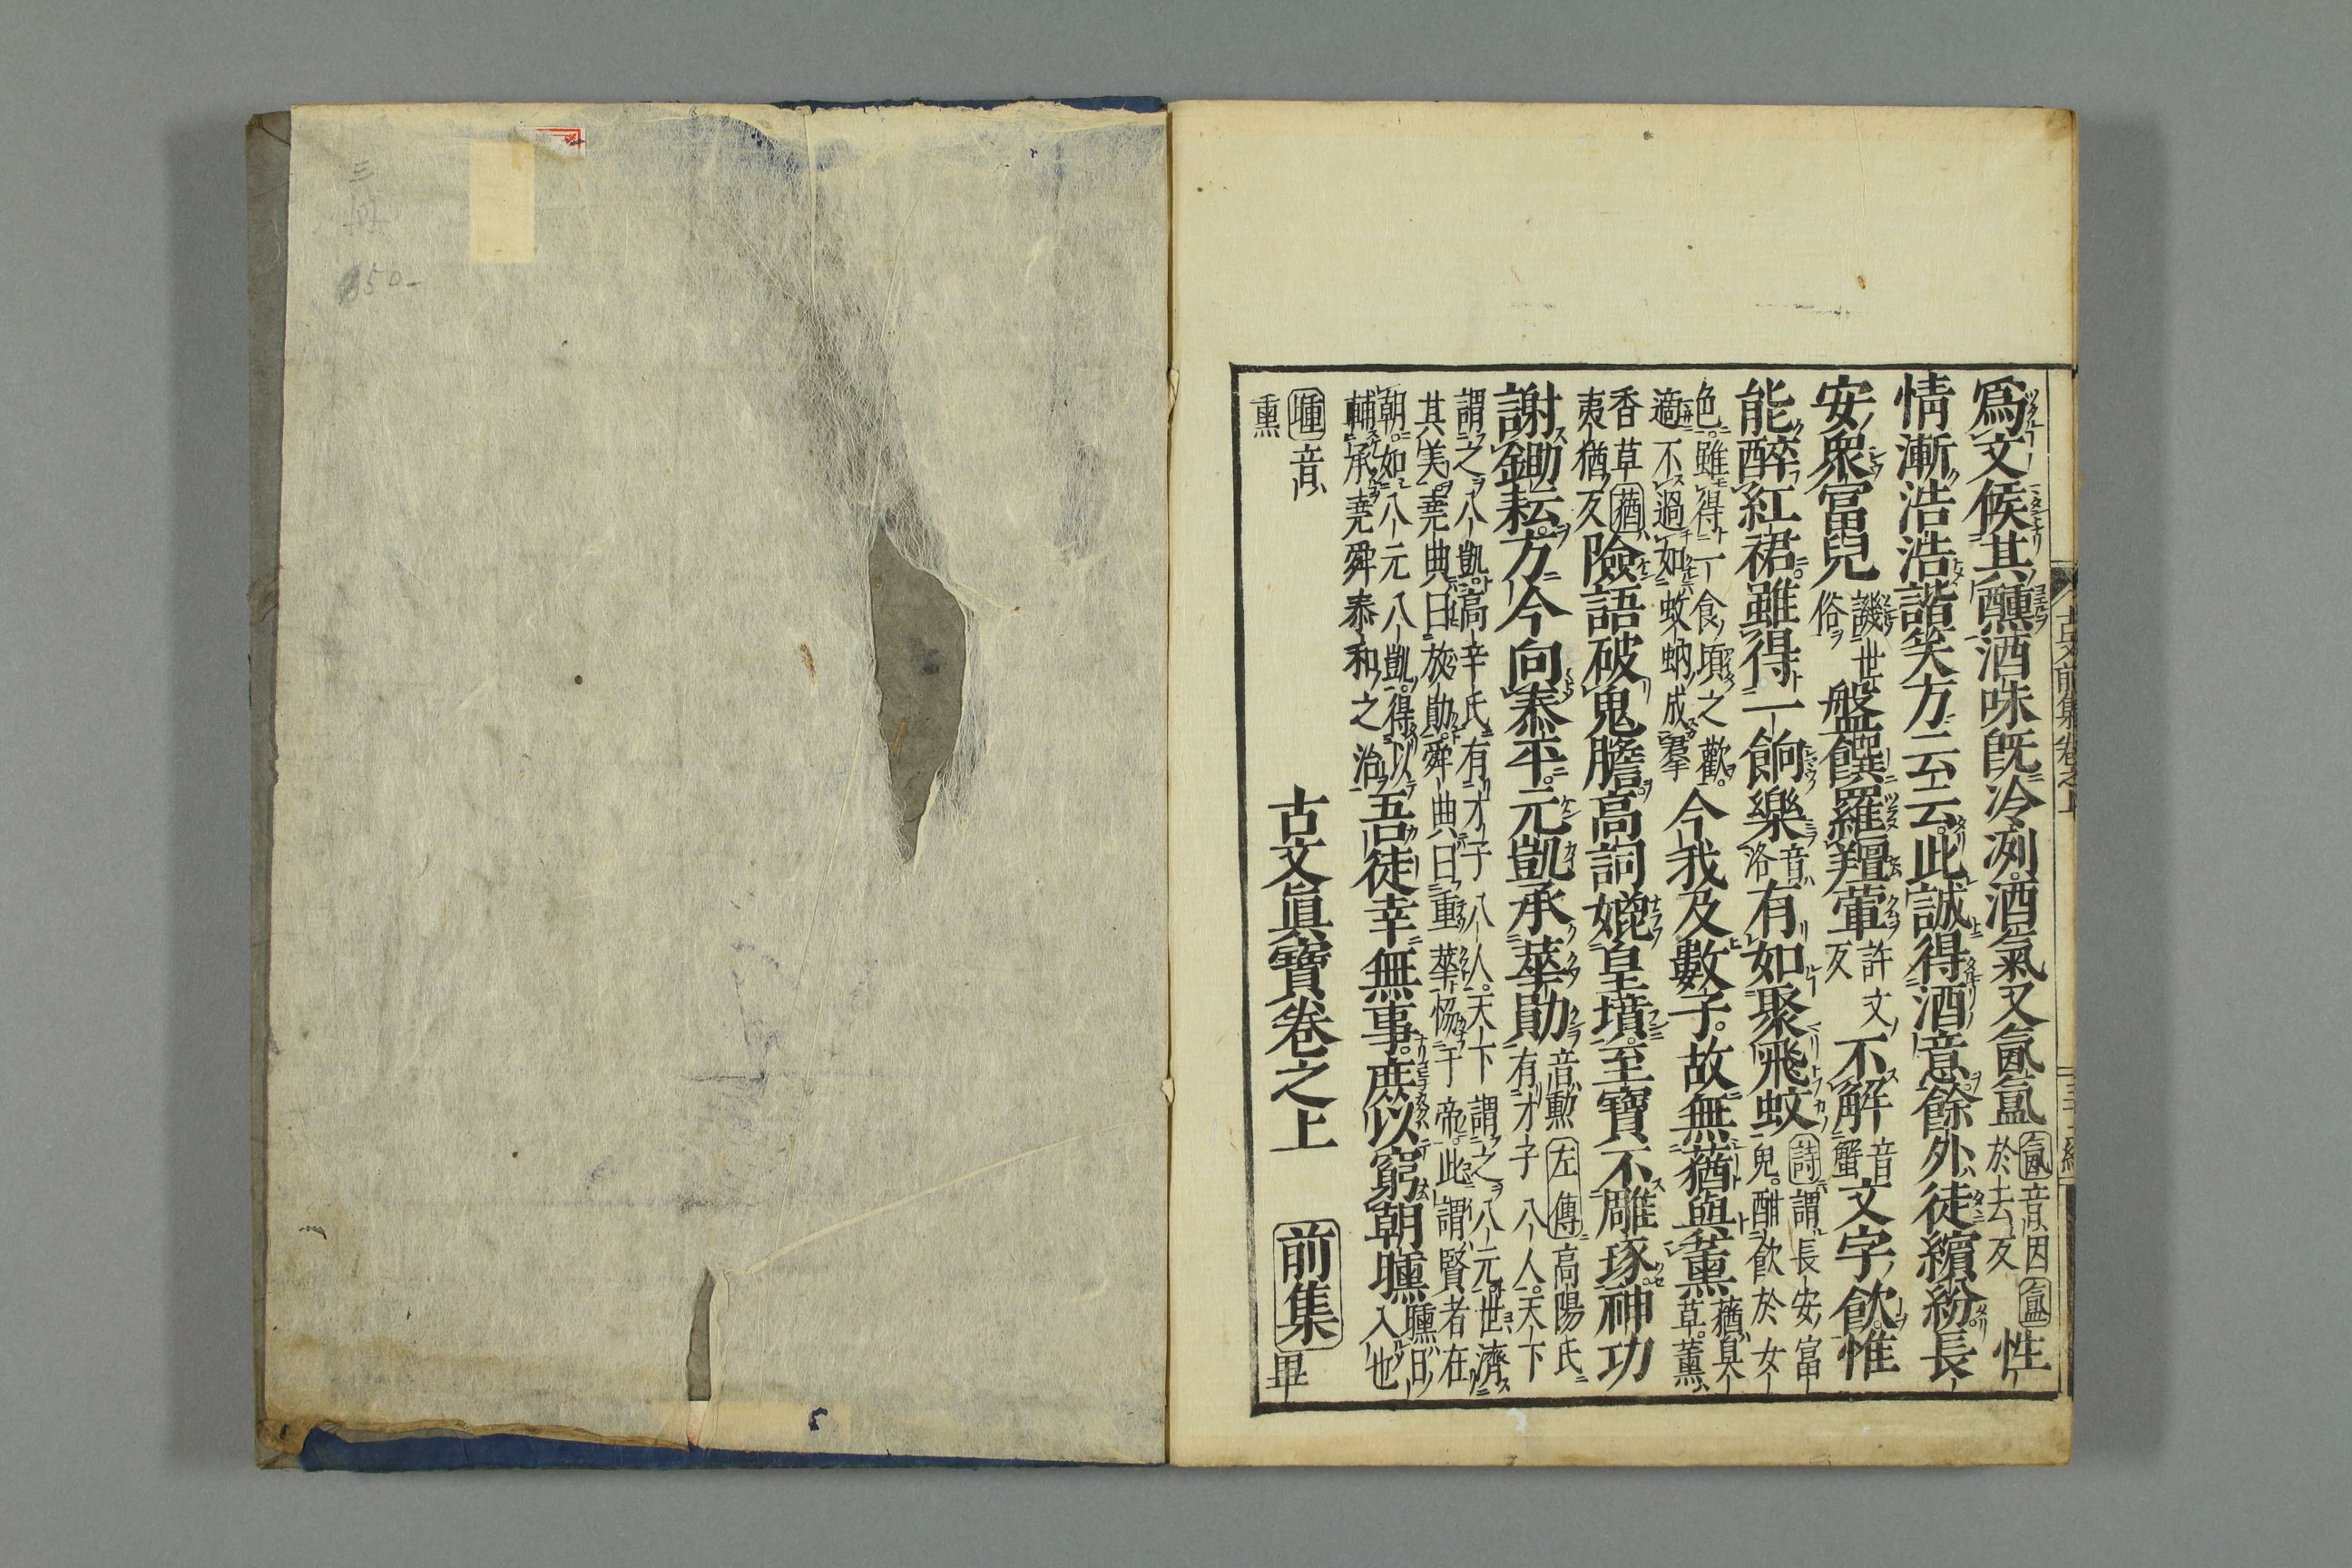 爲文候其醺酒味既冷冽酒氣又氤氳 氤音因氳於去反 性
情漸浩浩諧笑方云云此誠得酒意餘外徒繽紛長
安衆富兒 譏世俗 盤饌羅羶葷 許文反 不解 音蟹 文字飮惟
能醉紅裙雖得一餉樂 音洛 有如聚飛蚊 詩謂長安富兒酣飮於女
色雖得一食頃之歡適不過如蚊蚋成羣 今我及數子故無蕕與薰 蕕臭草薰
香草蕕夷猶反 險語破鬼膽高詞媲皇墳至寶不雕琢神功
謝鋤耘方今向泰平元凱承華勛 音勲左傳高陽氏有才子八人天下
謂之八凱高辛氏有才子八人天下謂之八元世濟
其美堯典曰放勛舜典曰重華恊于帝此謂賢者在
朝如八元八凱得以輔承堯舜泰和之治 吾徒幸無事庶以窮朝曛 曛日入也
曛音熏
古文眞寶卷之上 前集 畢
古文前集卷之上
三冊
50-
5